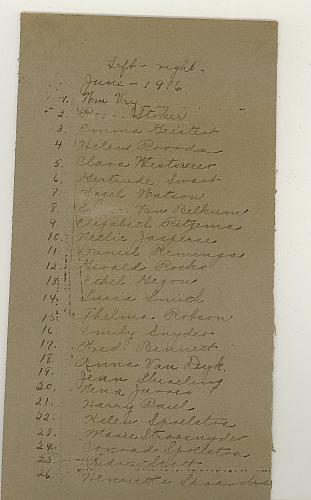 Left - right -
June - 1916.
1. Wm Vry
2. Stoker
3. Emma Geistert
4 Helen Rooode
5 Clara Westveer
6. Gertrude Swart
7. Hazel Watson
8. Van Belkum
9 Elizabeth Ritzema
10 Nellie Jasperse
11 Daniel Flemings
12. Gerald Rooks
13 Ethel
14. Lucia Smith
15 Thelma Robson
16. Emily Snyder
17. Fred. Bennett
18. Anna Van Dyk.
19. Jean Shiveling
20. Nina
21. Harry Paul
22. Helen Spoelstra
23. Marie
24. Conrade Spoelstra
25
26. Henrietta